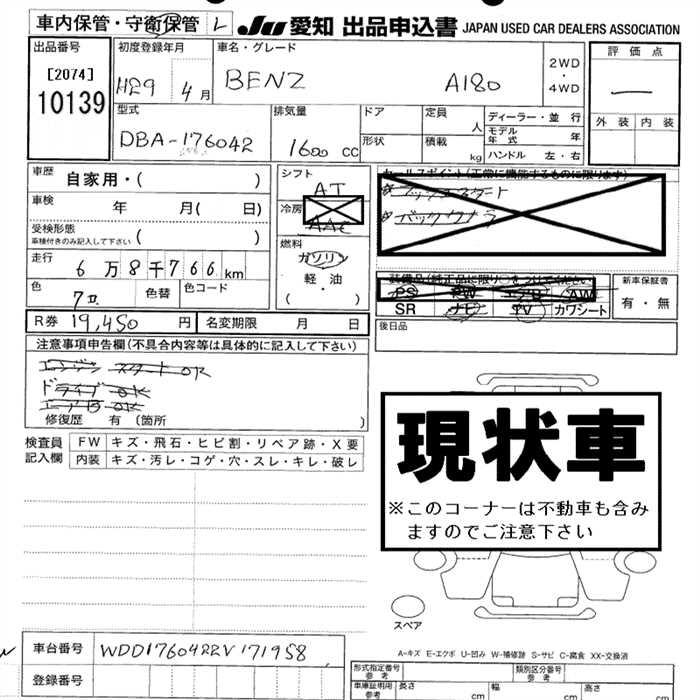 車内保管・守衛保管 L
JU 愛知 出品申込書 JAPAN USED CAR DEALERS ASSOCIATION
出品番号
[2074]
10139
初度登録年月
H29 年 4月
車名・グレード
BENZ A180
2WD
・
4WD
評価点
―
外装 内装
型式
DBA-176042
排気量
1600 cc
ドア
形状
定員
人
積載
kg
ディーラー・並 行
モデル年式 年
ハンドル 左・右
車歴 自家用・( )
車検 年 月( 日)
受検形態
車検付きのみ記入して下さい ( )
走行 6万8千766km
色 色替 色コード
R券 19,450 円 名変期限 月 日
シフト
AT
冷房
AAC
燃料
ガソリン
軽・油
( )
セールスポイント(正常に機能するものに限ります)
バックカメラ
装備品(純正品に限り○をつけてください)
PS PW エアB AW
SR ナビ TV カワシート
新車保証書
有・無
後日品
注意事項申告欄(不具合内容等は具体的に記入して下さい)
エンジン スタート OK
ドライブ OK
エアB OK
修復歴 有 (箇所 )
検査員
記入欄
FW キズ・飛石・ヒビ割・リペア跡・X要
内装 キズ・汚レ・コゲ・穴・スレ・キレ・破レ
現状車
※このコーナーは不動車も含み
ますのでご注意下さい
スペア
A-キズ E-エクボ U-凹み W-補修跡 S-サビ C-腐食 XX-交換済
車台番号 WDD1760422V171958
登録番号
形式指定番号
参考
類別区分番号
参考
車庫証明用
参考
長さ cm 幅 cm 高さ cm